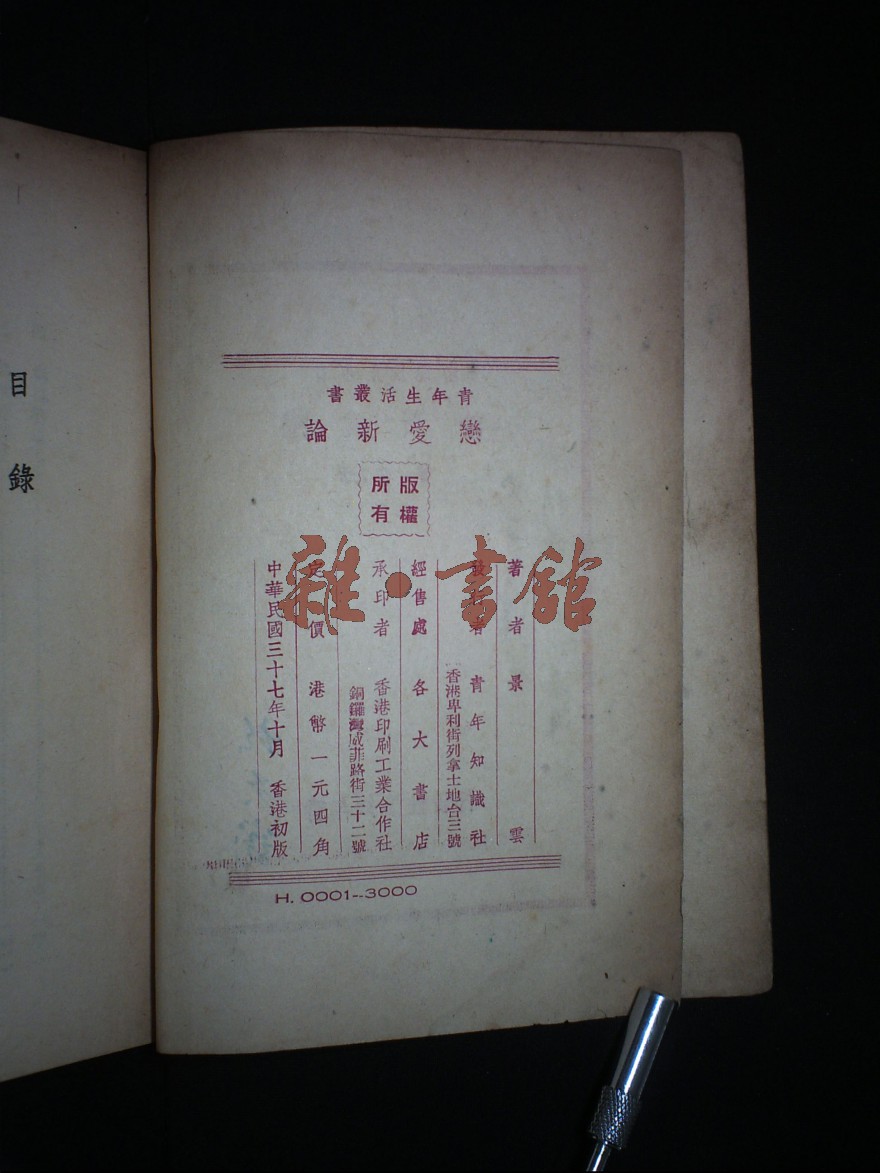 目錄
青年生活叢書
戀愛新論
版權
所有
著者 景雲
發行者 青年知識社
香港卑利街列拿士地台三號
經售處 各大書店
承印者 香港印刷工業合作社
銅鑼灣威菲路街三十二號
定價 港幣一元四角
中華民國三十七年十月 香港初版
H. 0001--3000
雜·書館